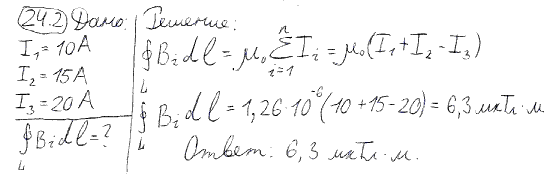 24.2 Дано: Решение:
I₁ = 10 А
I₂ = 15 А
I₃ = 20 А
∮_L B_i dl = ?
∮_L B_i dl = μ₀ ∑_{i=1}^{n} I_i = μ₀(I₁ + I₂ - I₃)
∮_L B_i dl = 1,26·10⁻⁶(10+15-20) = 6,3 мкТл·м.
Ответ: 6,3 мкТл·м.